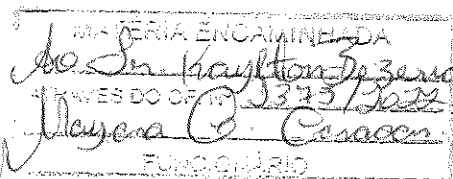 MATÉRIA ENCAMINHADA
Ao Sr. Kaylton Bezerra
ATRAVÉS DO OF. Nº 2373/2022
Mayara B.
FUNCIONÁRIO